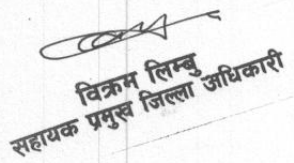 विक्रम लिम्बु
सहायक प्रमुख जिल्ला अधिकारी